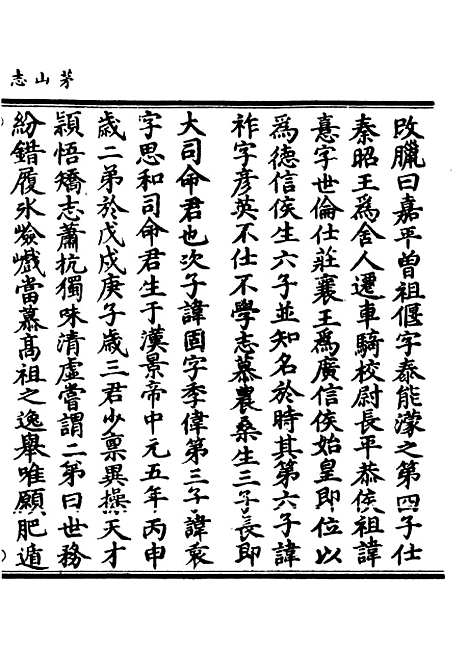 茅山志
改臘曰嘉平曾祖偃字泰能濛之第四子仕
秦昭王爲舍人遷車騎校尉長平恭侯祖諱
憙字世倫仕莊襄王爲廣信侯始皇即位以
爲德信侯生六子並知名於時其第六子諱
祚字彦英不仕不學志慕農桑生三子長即
大司命君也次子諱固字季偉第三子諱衷
字思和司命君生于漢景帝中元五年丙申
歲二弟於戊戌庚子歲三君少禀異操天才
穎悟矯志蕭抗獨味清虛嘗謂二弟曰世務
紛錯履氷嶮巇當慕髙祖之逸舉唯願肥遁